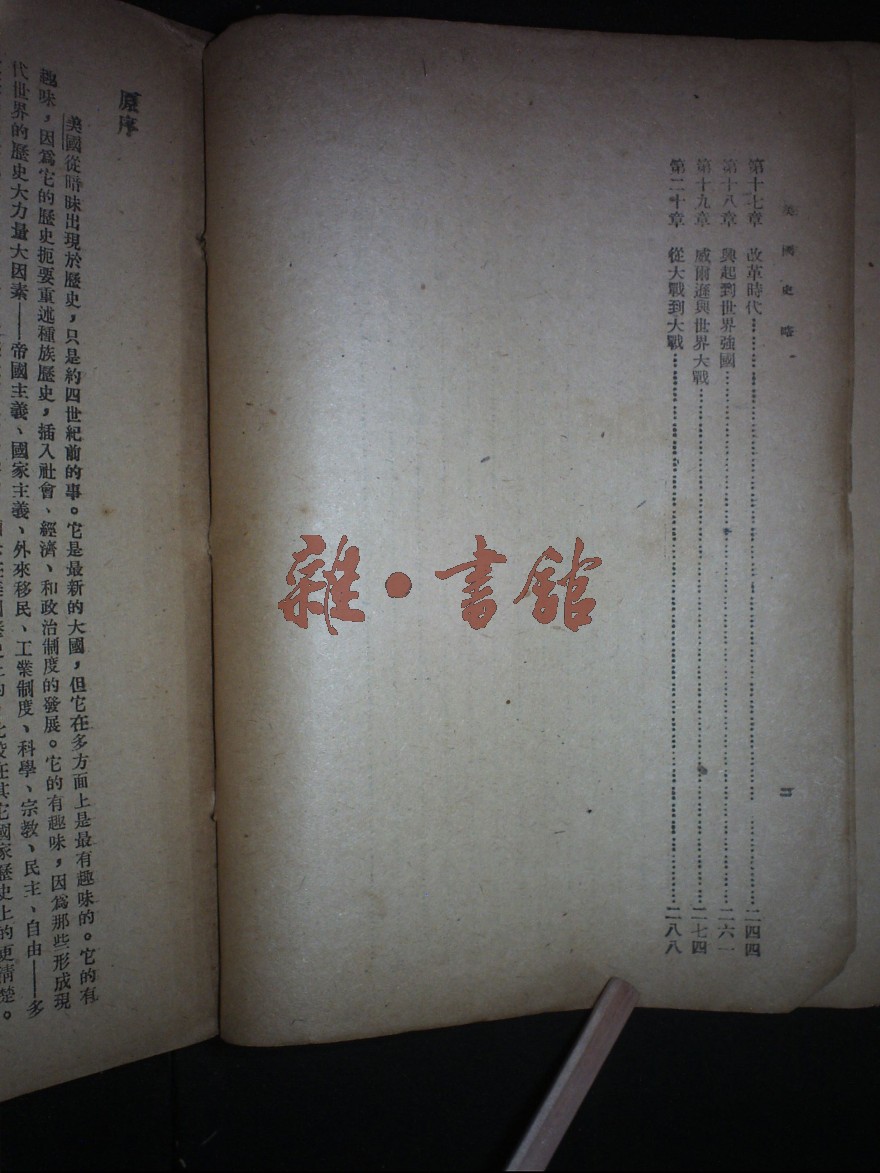 美國史略
第十七章 改革時代……二四四
第十八章 興起到世界強國……二六一
第十九章 威爾遜與世界大戰……二七四
第二十章 從大戰到大戰……二八八
二
雜·書館
原序
美國從暗昧出現於歷史，只是約四世紀前的事。它是最新的大國，但它在多方面上是最有趣味的。它的有
趣味，因為它的歷史扼要重述種族歷史，插入社會、經濟、和政治制度的發展。它的有趣味，因為那些形成現
代世界的歷史大力量大因素——帝國主義、國家主義、外來移民、工業制度、科學、宗教、民主、自由——多
比較在其它國家歷史上的更清楚。